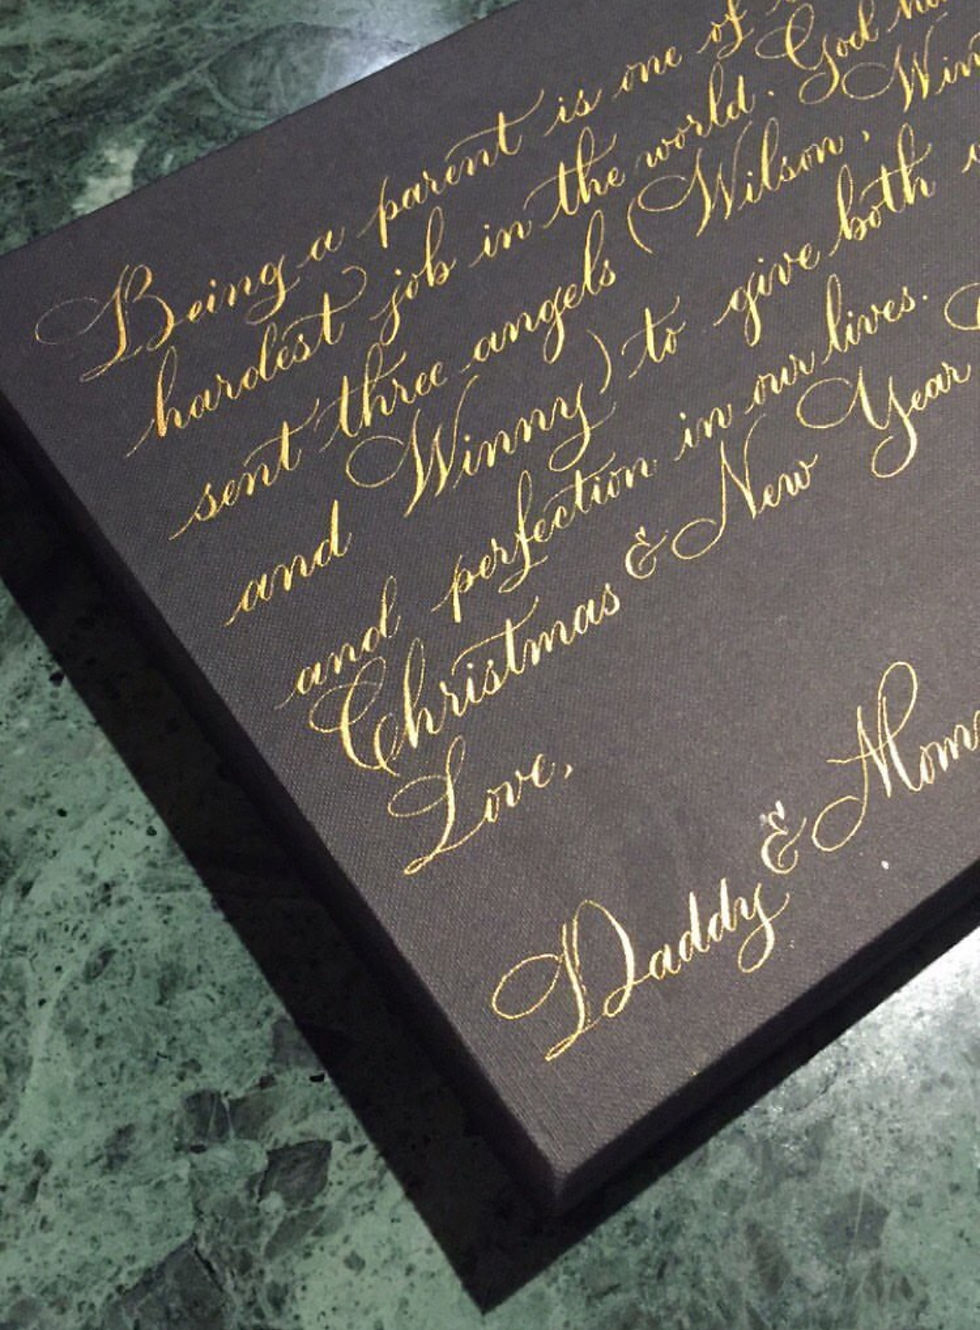 Being a parent is one of
hardest job in the world. God
sent three angels (Wilson,
and Winny) to give both
and perfection in our lives.
Christmas & New Year
Love,
Daddy & Mom